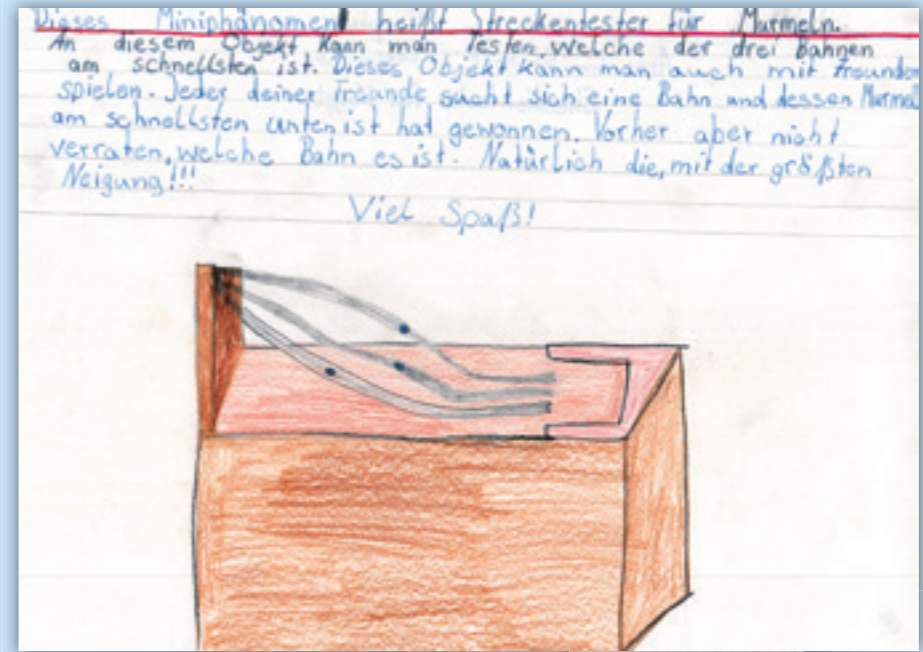 Dieses Miniphänomen heißt Streckentester für Murmeln.
An diesem Objekt, kann man Testen, welche der drei bahnen
am schnellsten ist. Dieses Objekt kann man auch mit freunden
spielen. Jeder deiner freunde sucht sich eine Bahn und dessen Murmel
am schnellsten unten ist hat gewonnen. Vorher aber nicht
verraten, welche Bahn es ist. Natürlich die, mit der größten
Neigung!!!
Viel Spaß!